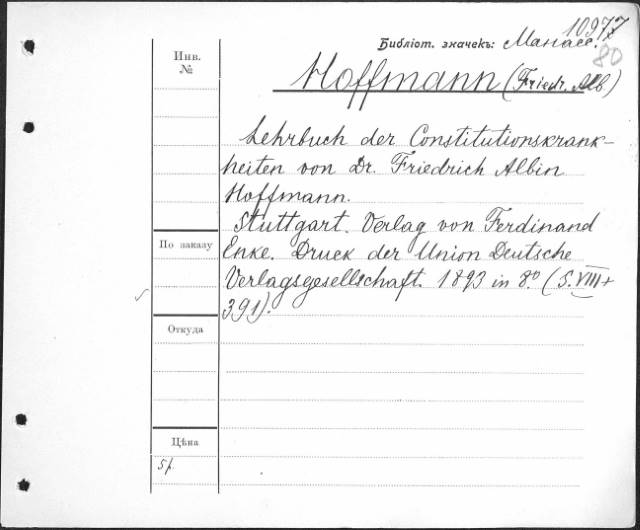 10977
Библіот. значекъ: Манасс.
80
Инв.
№
Hoffmann (Friedr. Alb.)
Lehrbuch der Constitutionskrank-
heiten von Dr. Friedrich Albin
Hoffmann.
Stuttgart. Verlag von Ferdinand
Enke. Druck der Union Deutsche
Verlagsgesellschaft. 1893 in 8.º (S. VIII +
391).
По заказу
Откуда
Цѣна
5р.